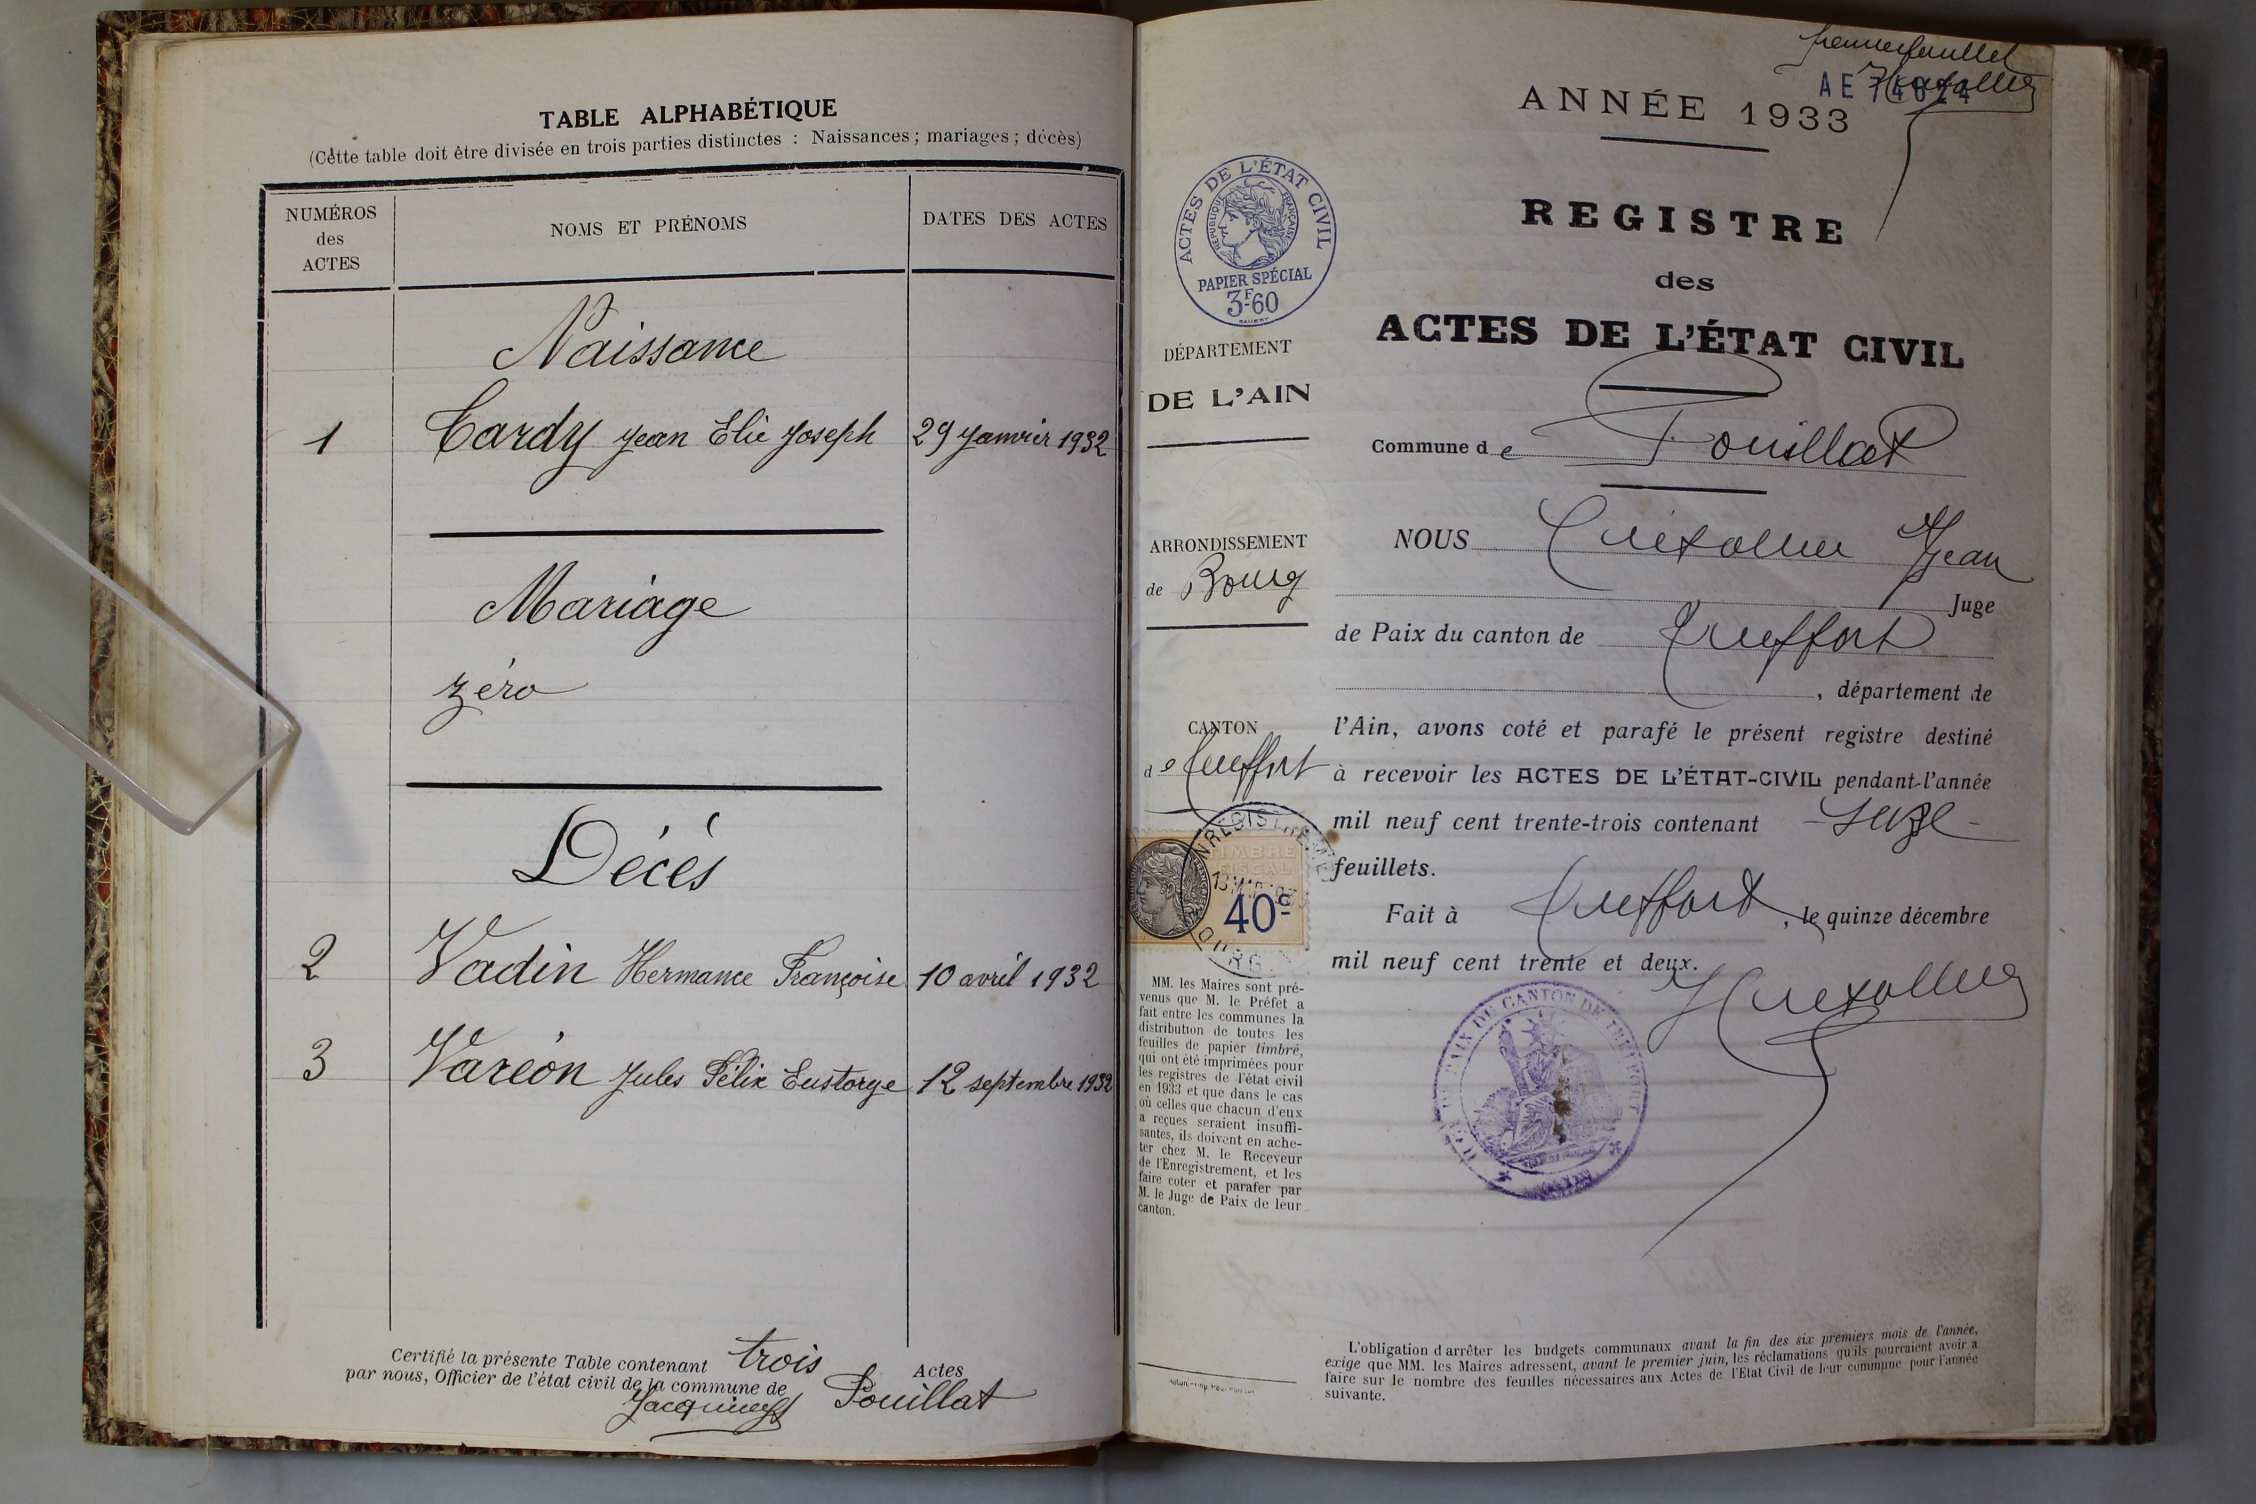 TABLE ALPHABÉTIQUE
(Cette table doit être divisée en trois parties distinctes : Naissances ; mariages ; décès)
NUMÉROS
des
ACTES
NOMS ET PRÉNOMS
DATES DES ACTES
Naissance
1 Cardy Jean Elie Joseph 29 Janvier 1932
Mariage
zéro
Décès
2 Vadin Hermance Françoise 10 avril 1932
3 Varéon Jules Félix Eustorge 12 septembre 1932
Certifié la présente Table contenant trois Actes
par nous, Officier de l'état civil de la commune de Pouillat
premier feuillet
AE
ANNÉE 1933
REGISTRE
des
ACTES DE L'ÉTAT CIVIL
ACTES DE L'ÉTAT CIVIL
RÉPUBLIQUE FRANÇAISE
PAPIER SPÉCIAL
3F60
DÉPARTEMENT
DE L'AIN
ARRONDISSEMENT
de Bourg
CANTON
de Treffort
TIMBRE
FISCAL
40c
ENREGISTREMENT
MM. les Maires sont pré-
venus que M. le Préfet a
fait entre les communes la
distribution de toutes les
feuilles de papier timbré,
qui ont été imprimées pour
les registres de l'état civil
en 1933 et que dans le cas
où celles que chacun d'eux
a reçues seraient insuffi-
santes, ils doivent en ache-
ter chez M. le Receveur
de l'Enregistrement, et les
faire coter et parafer par
M. le Juge de Paix de leur
canton.
Commune de Pouillat
NOUS Jean
Juge
de Paix du canton de Treffort
, département de
l'Ain, avons coté et parafé le présent registre destiné
à recevoir les ACTES DE L'ÉTAT-CIVIL pendant l'année
mil neuf cent trente-trois contenant - seize -
feuillets.
Fait à Treffort, le quinze décembre
mil neuf cent trente et deux.
L'obligation d'arrêter les budgets communaux avant la fin des six premiers mois de l'année,
exige que MM. les Maires adressent, avant le premier juin, les réclamations qu'ils pourraient avoir à
faire sur le nombre des feuilles nécessaires aux Actes de l'Etat Civil de leur commune pour l'année
suivante.